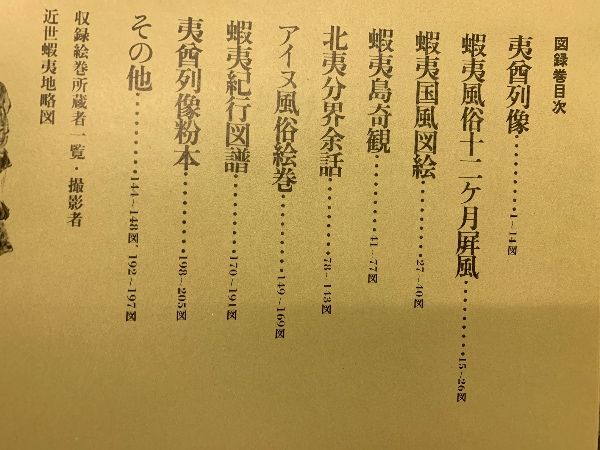 図録巻目次
夷酋列像………1~14図
蝦夷風俗十二ケ月屛風………15~26図
蝦夷国風図絵………27~40図
蝦夷島奇観………41~77図
北夷分界余話………78~143図
アイヌ風俗絵巻………149~169図
蝦夷紀行図譜………170~191図
夷酋列像粉本………198~205図
その他………144~148図、192~197図
収録絵巻所蔵者一覧・撮影者
近世蝦夷地略図